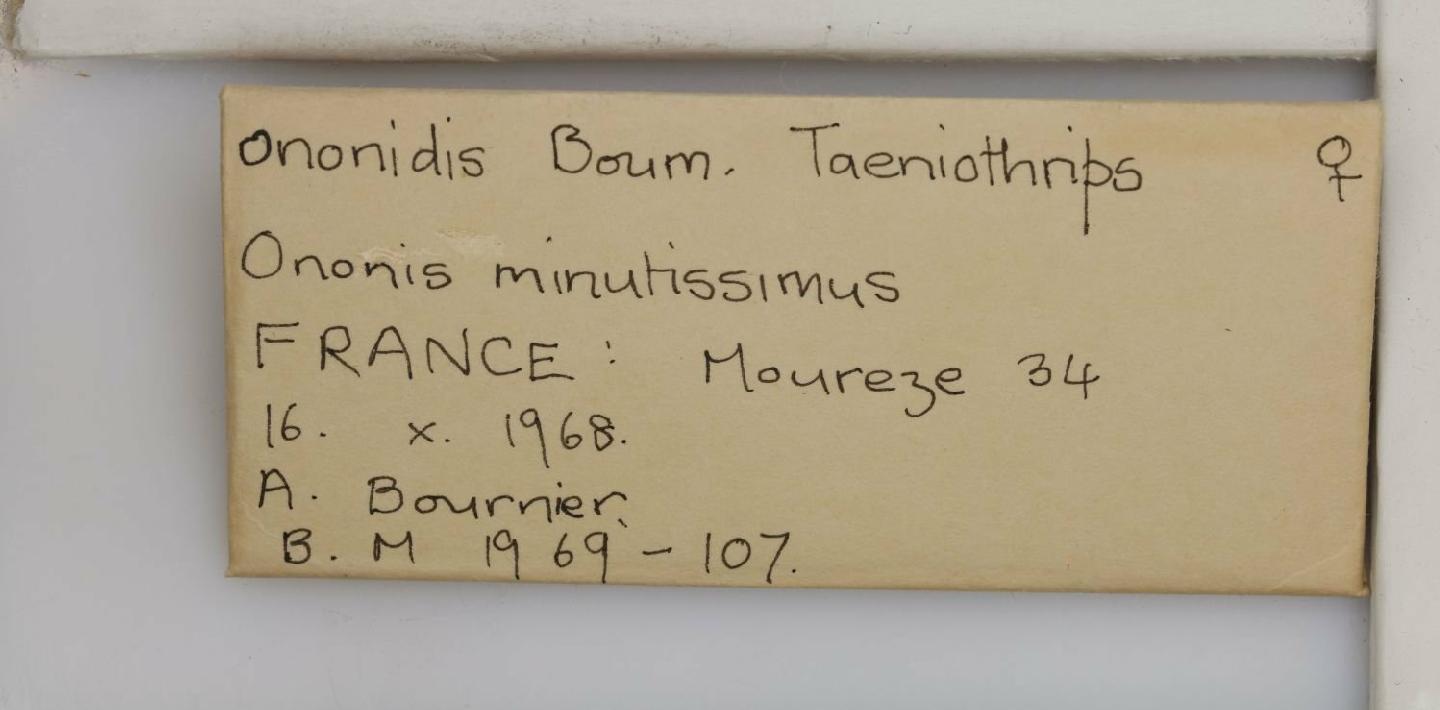 Ononidis Bourn. Taeniothrips ♀
Ononis minutissimus
FRANCE : Moureze 34
16. x. 1968.
A. Bournier.
B. M 1969 - 107.